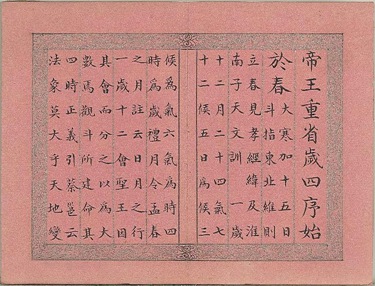 帝王重省歲四序始
於春大寒加十五日
斗指東北維則
立春見孝經緯及淮
南子天文訓 一歲
十二月二十四氣七
十二候五日為候三
候為氣六氣為時四
時為歲禮月令孟春
之月註云日月之行
一歲十二會聖王因
其會而分之以為大
數焉觀斗所建命其
四時正義引蔡邕云
法象莫大乎天地變